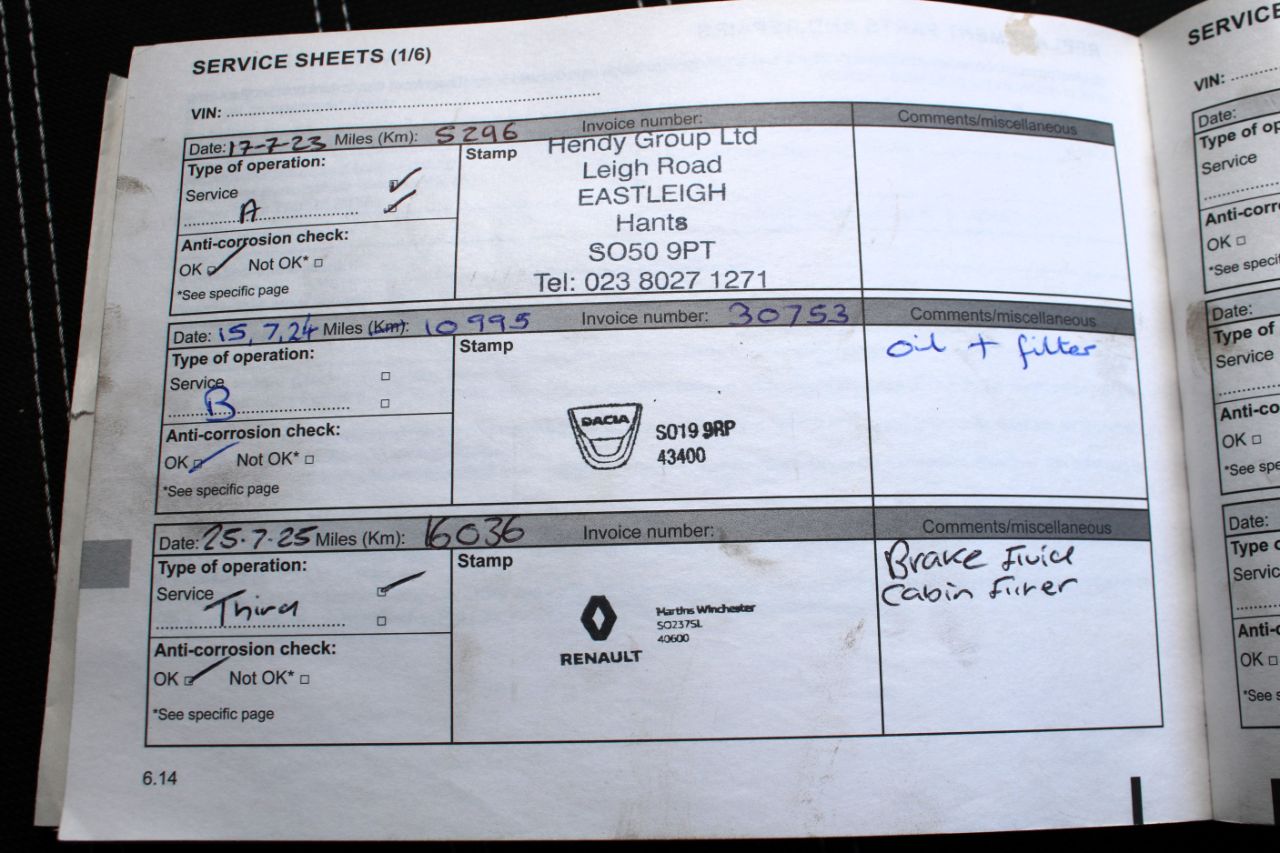 SERVICE SHEETS (1/6)
VIN:
Date: 17-7-23 Miles (Km): 5296 Invoice number: Comments/miscellaneous
Type of operation:
Service
A
Anti-corrosion check:
OK Not OK*
*See specific page
Stamp
Hendy Group Ltd
Leigh Road
EASTLEIGH
Hants
SO50 9PT
Tel: 023 8027 1271
Date: 15,7,24 Miles (Km): 10995 Invoice number: 30753 Comments/miscellaneous
Type of operation:
Service
B
Anti-corrosion check:
OK Not OK*
*See specific page
Stamp
DACIA
SO19 9RP
43400
oil + filter
Date: 25.7.25 Miles (Km): 16036 Invoice number: Comments/miscellaneous
Type of operation:
Service
Third
Anti-corrosion check:
OK Not OK*
*See specific page
Stamp
RENAULT
Martins Winchester
SO237SL
40600
Brake Fluid
Cabin Filter
6.14
SERVICE
VIN:
Date:
Type of op
Service
Anti-corro
OK
*See specif
Date:
Type of
Service
Anti-co
OK
*See spe
Date:
Type o
Servic
Anti-c
OK
*See s